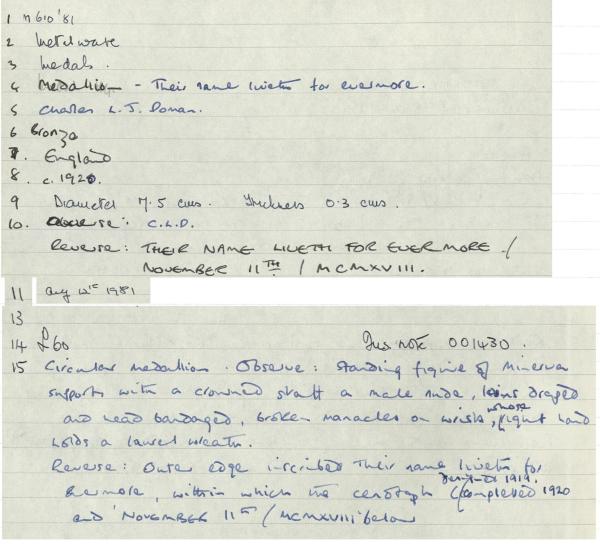 1 n610'81
2 Metelware
3 Medals.
4 Medallion - Their name liveth for evermore.
5 Charles L. J. Doman.
6 Bronze
7. England
8. c. 1920.
9 Diameter 7.5 cms. Thickness 0.3 cms.
10. Obverse: C.L.D.
Reverse: THEIR NAME LIVETH FOR EVERMORE. /
NOVEMBER 11TH / MCMXVIII.
11 Aug 12th 1981
13
14 £60 Ins note 001430.
15 Circular medallion. Observe: Standing figure of Minerva
supports with a crowned shaft a male nude, loins draped
and head bandaged, broken manacles on wrists, whose right hand
holds a laurel wreath.
Reverse: Outer edge inscribed Their name liveth for
evermore, within which the cenotaph (designed 1919, completed 1920
and NOVEMBER 11TH / MCMXVIII below